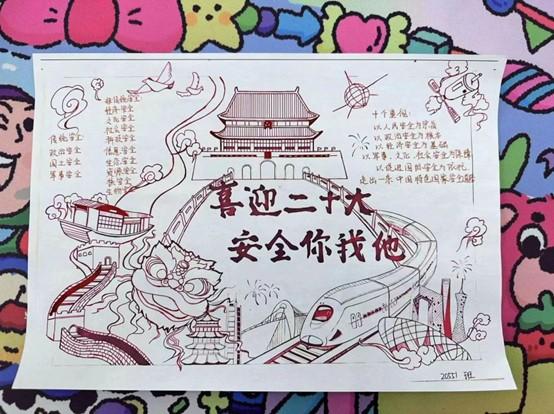 非传统安全
经济安全
文化安全
社会安全
科技安全
信息安全
生态安全
资源安全
核安全
生物安全
传统安全
政治安全
国土安全
军事安全
十个重视:
以人民安全为宗旨
以政治安全为根本
以经济安全为基础
以军事、文化、社会安全为保障
以促进国际安全为依托
走出一条中国特色国家安全道路
喜迎二十大
安全你我他
20551 班